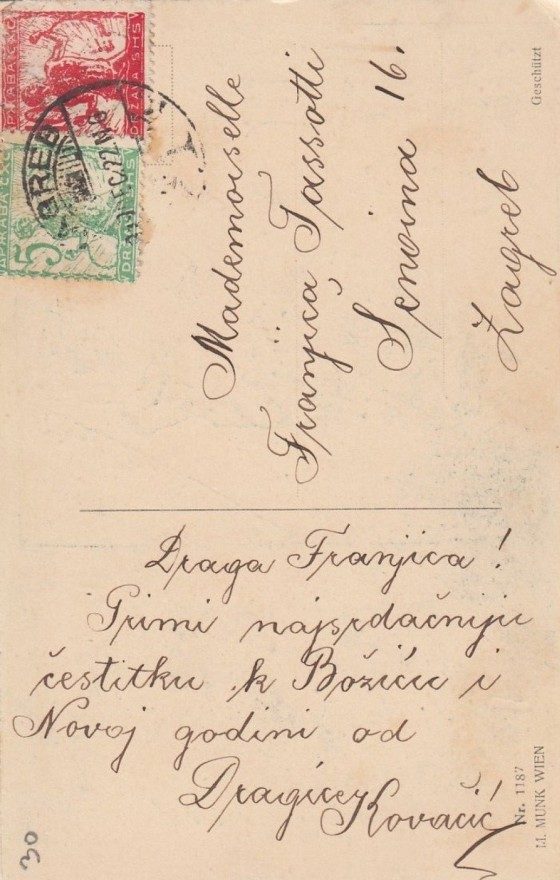 Mademoiselle
Franjica Tassotti
Senoina 16.
Zagreb
Draga Franjica!
Primi najsrdačniju
čestitku k Božiću i
Novoj godini od
Dragice Kovačić
Geschützt
Nr. 1187
M. MUNK WIEN
30
5
DRŽAVA SHS